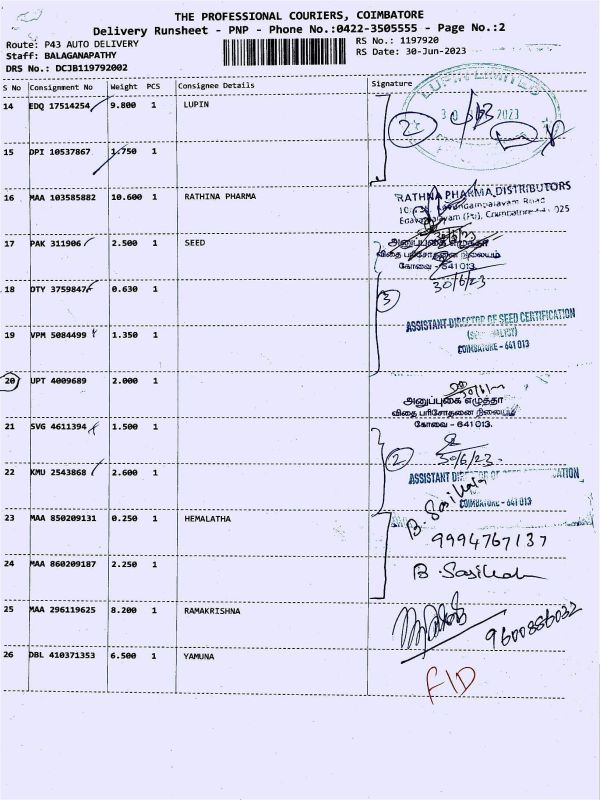 THE PROFESSIONAL COURIERS, COIMBATORE
Delivery Runsheet - PNP - Phone No.:0422-3505555 - Page No.:2
Route: P43 AUTO DELIVERY
RS No.: 1197920
Staff: BALAGANAPATHY
RS Date: 30-Jun-2023
DRS No.: DCJB119792002
S No Consignment No Weight PCS Consignee Details Signature
14 EDQ 17514254 9.800 1 LUPIN
LUPIN LIMITED
2023
2
15 DPI 10537867 1.750 1
16 MAA 103585882 10.600 1 RATHINA PHARMA
RATHNA PHARMA DISTRIBUTORS
17 PAK 311906 2.500 1 SEED
அனுப்புகை எழுத்தர்
விதை பரிசோதனை நிலையம்
கோவை - 641 013.
30/6/23
18 DTY 3759847 0.630 1
3
ASSISTANT DIRECTOR OF SEED CERTIFICATION
COIMBATORE - 641 013
19 VPM 5084499 1.350 1
20 UPT 4009689 2.000 1
அனுப்புகை எழுத்தர்
விதை பரிசோதனை நிலையம்
கோவை - 641 013.
21 SVG 4611394 1.500 1
30/6/23
2
22 KMU 2543868 2.600 1
ASSISTANT DIRECTOR OF SEED CERTIFICATION
COIMBATORE - 641 013
23 MAA 850209131 0.250 1 HEMALATHA
9994767137
24 MAA 860209187 2.250 1
25 MAA 296119625 8.200 1 RAMAKRISHNA
9600886032
26 DBL 410371353 6.500 1 YAMUNA
FID